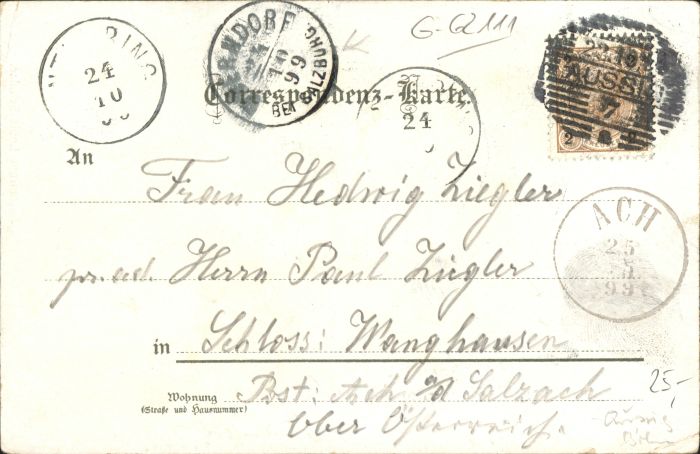 G-Q 111
24
10
NDORF
10
99
BEI SALZBURG
22
AUSSI
7
2
Correspondenz-Karte.
24
An
Frau Hedwig Ziegler
ACH
25
99
Herrn Paul Ziegler
in Schloss: Wanghausen
Wohnung
(Straße und Hausnummer)
Pst: Ach a/d Salzach
25,-
Ober Österreich.
Aussig